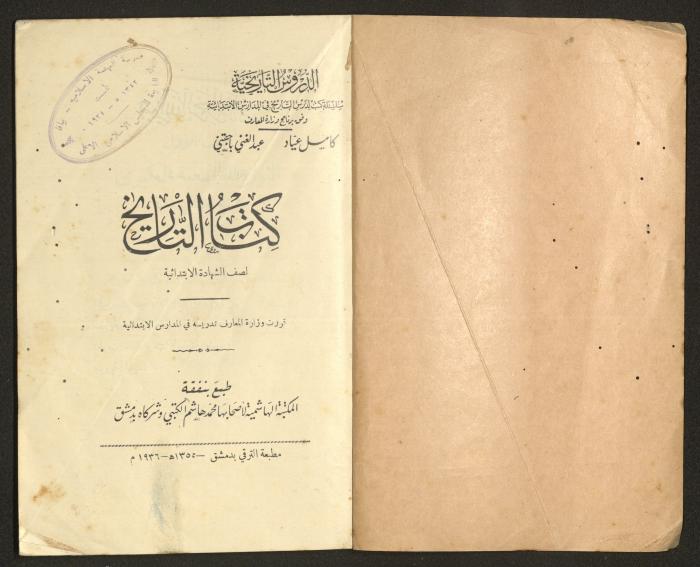 الدروس التاريخية
سلسلة كتب لدرس التاريخ في المدارس الابتدائية
وفق برنامج وزارة المعارف
كامل عياد عبد الغني باجقني
كتاب التاريخ
لصف الشهادة الابتدائية
قررت وزارة المعارف تدريسه في المدارس الابتدائية
طبع بنفقة
المكتبة الهاشمية لأصحابها محمد هاشم الكتبي وشركاه بدمشق
مطبعة الترقي بدمشق – ١٣٥٥ه – ١٩٣٦ م